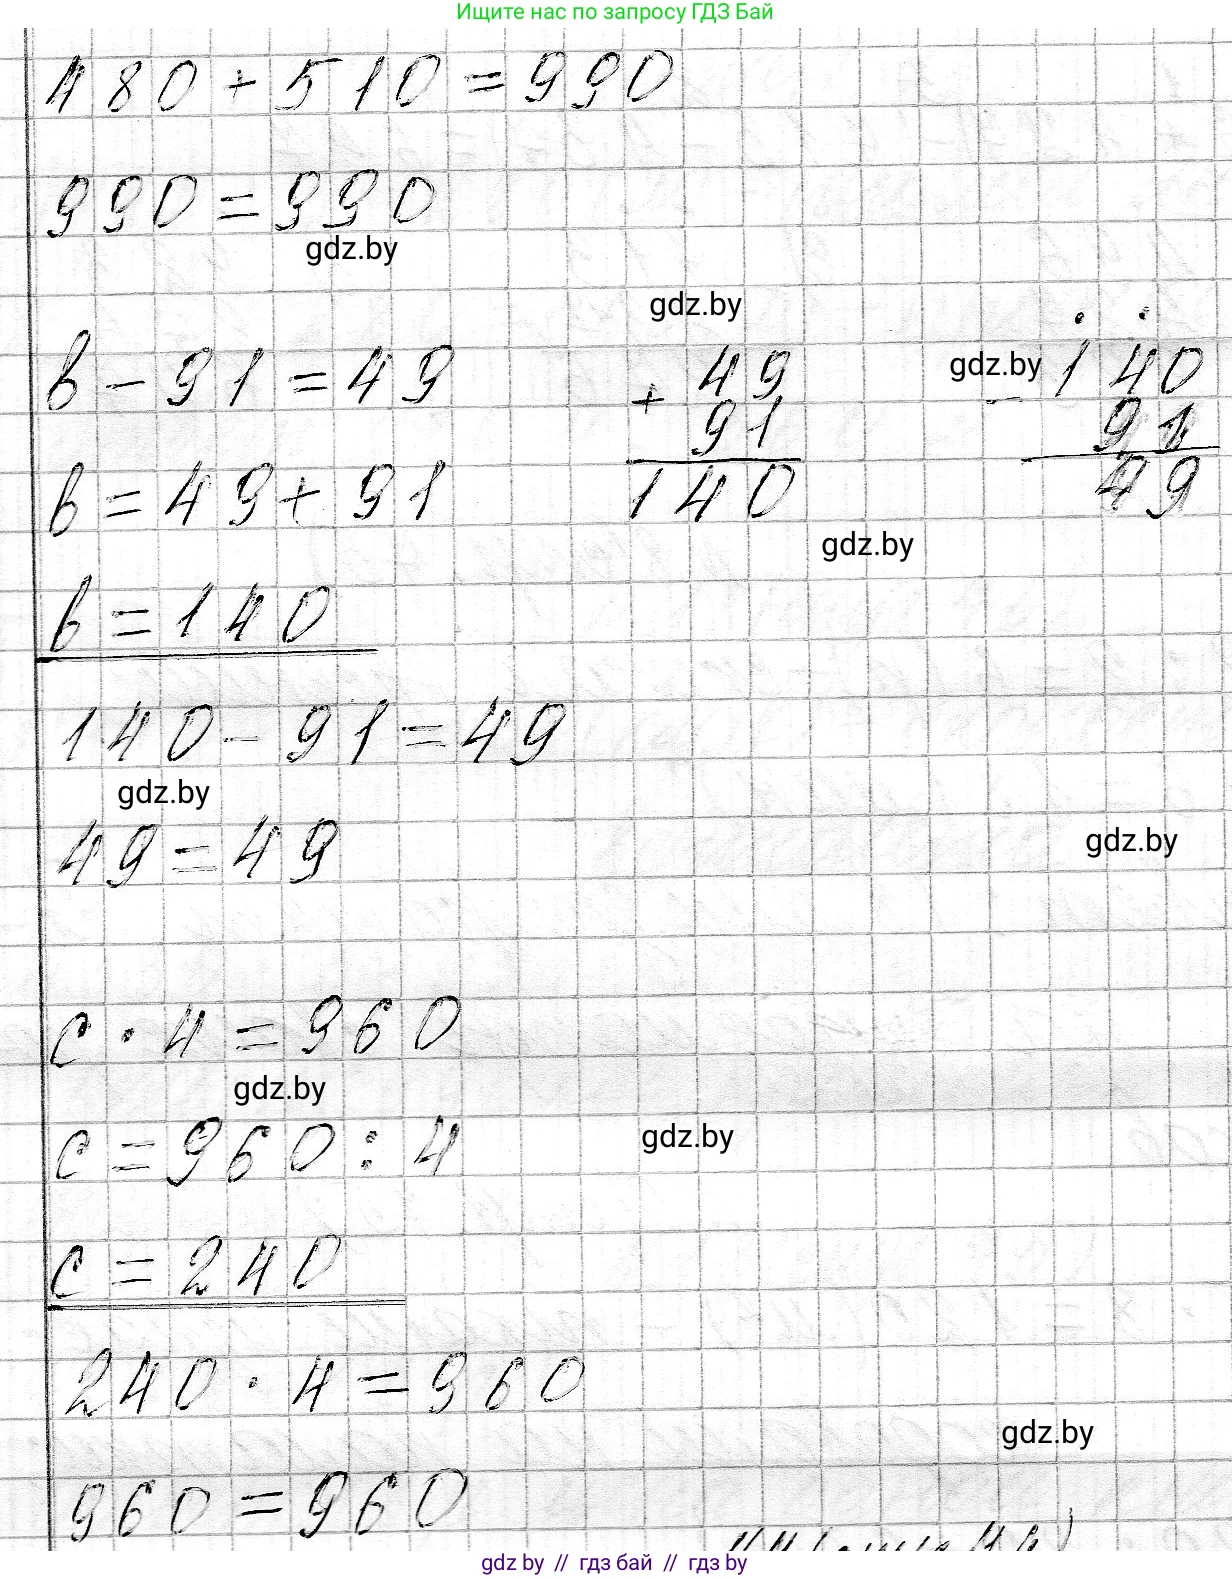 Ищите нас по запросу ГДЗ Бай
480 + 510 = 990
990 = 990
gdz.by
gdz.by
в - 91 = 49
+ 49
91
140
gdz.by
- 140
91
49
в = 49 + 91
gdz.by
в = 140
140 - 91 = 49
gdz.by
49 = 49
gdz.by
с · 4 = 960
gdz.by
с = 960 : 4
gdz.by
с = 240
240 · 4 = 960
gdz.by
960 = 960
gdz by // гдз бай // gdz by